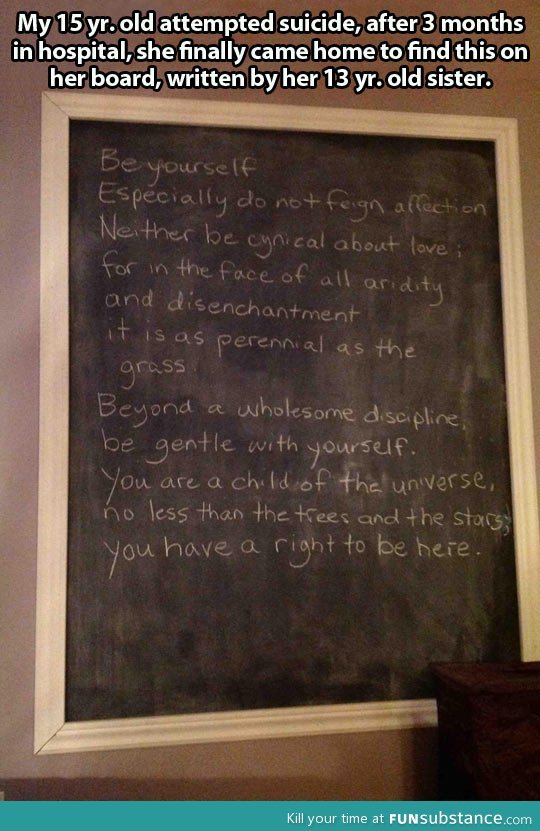 My 15 yr. old attempted suicide, after 3 months
in hospital, she finally came home to find this on
her board, written by her 13 yr. old sister.
Be yourself
Especially do not feign affection
Neither be cynical about love;
for in the face of all aridity
and disenchantment
it is as perennial as the
grass.
Beyond a wholesome discipline,
be gentle with yourself.
You are a child of the universe,
no less than the trees and the stars;
you have a right to be here.
Kill your time at FUNsubstance.com